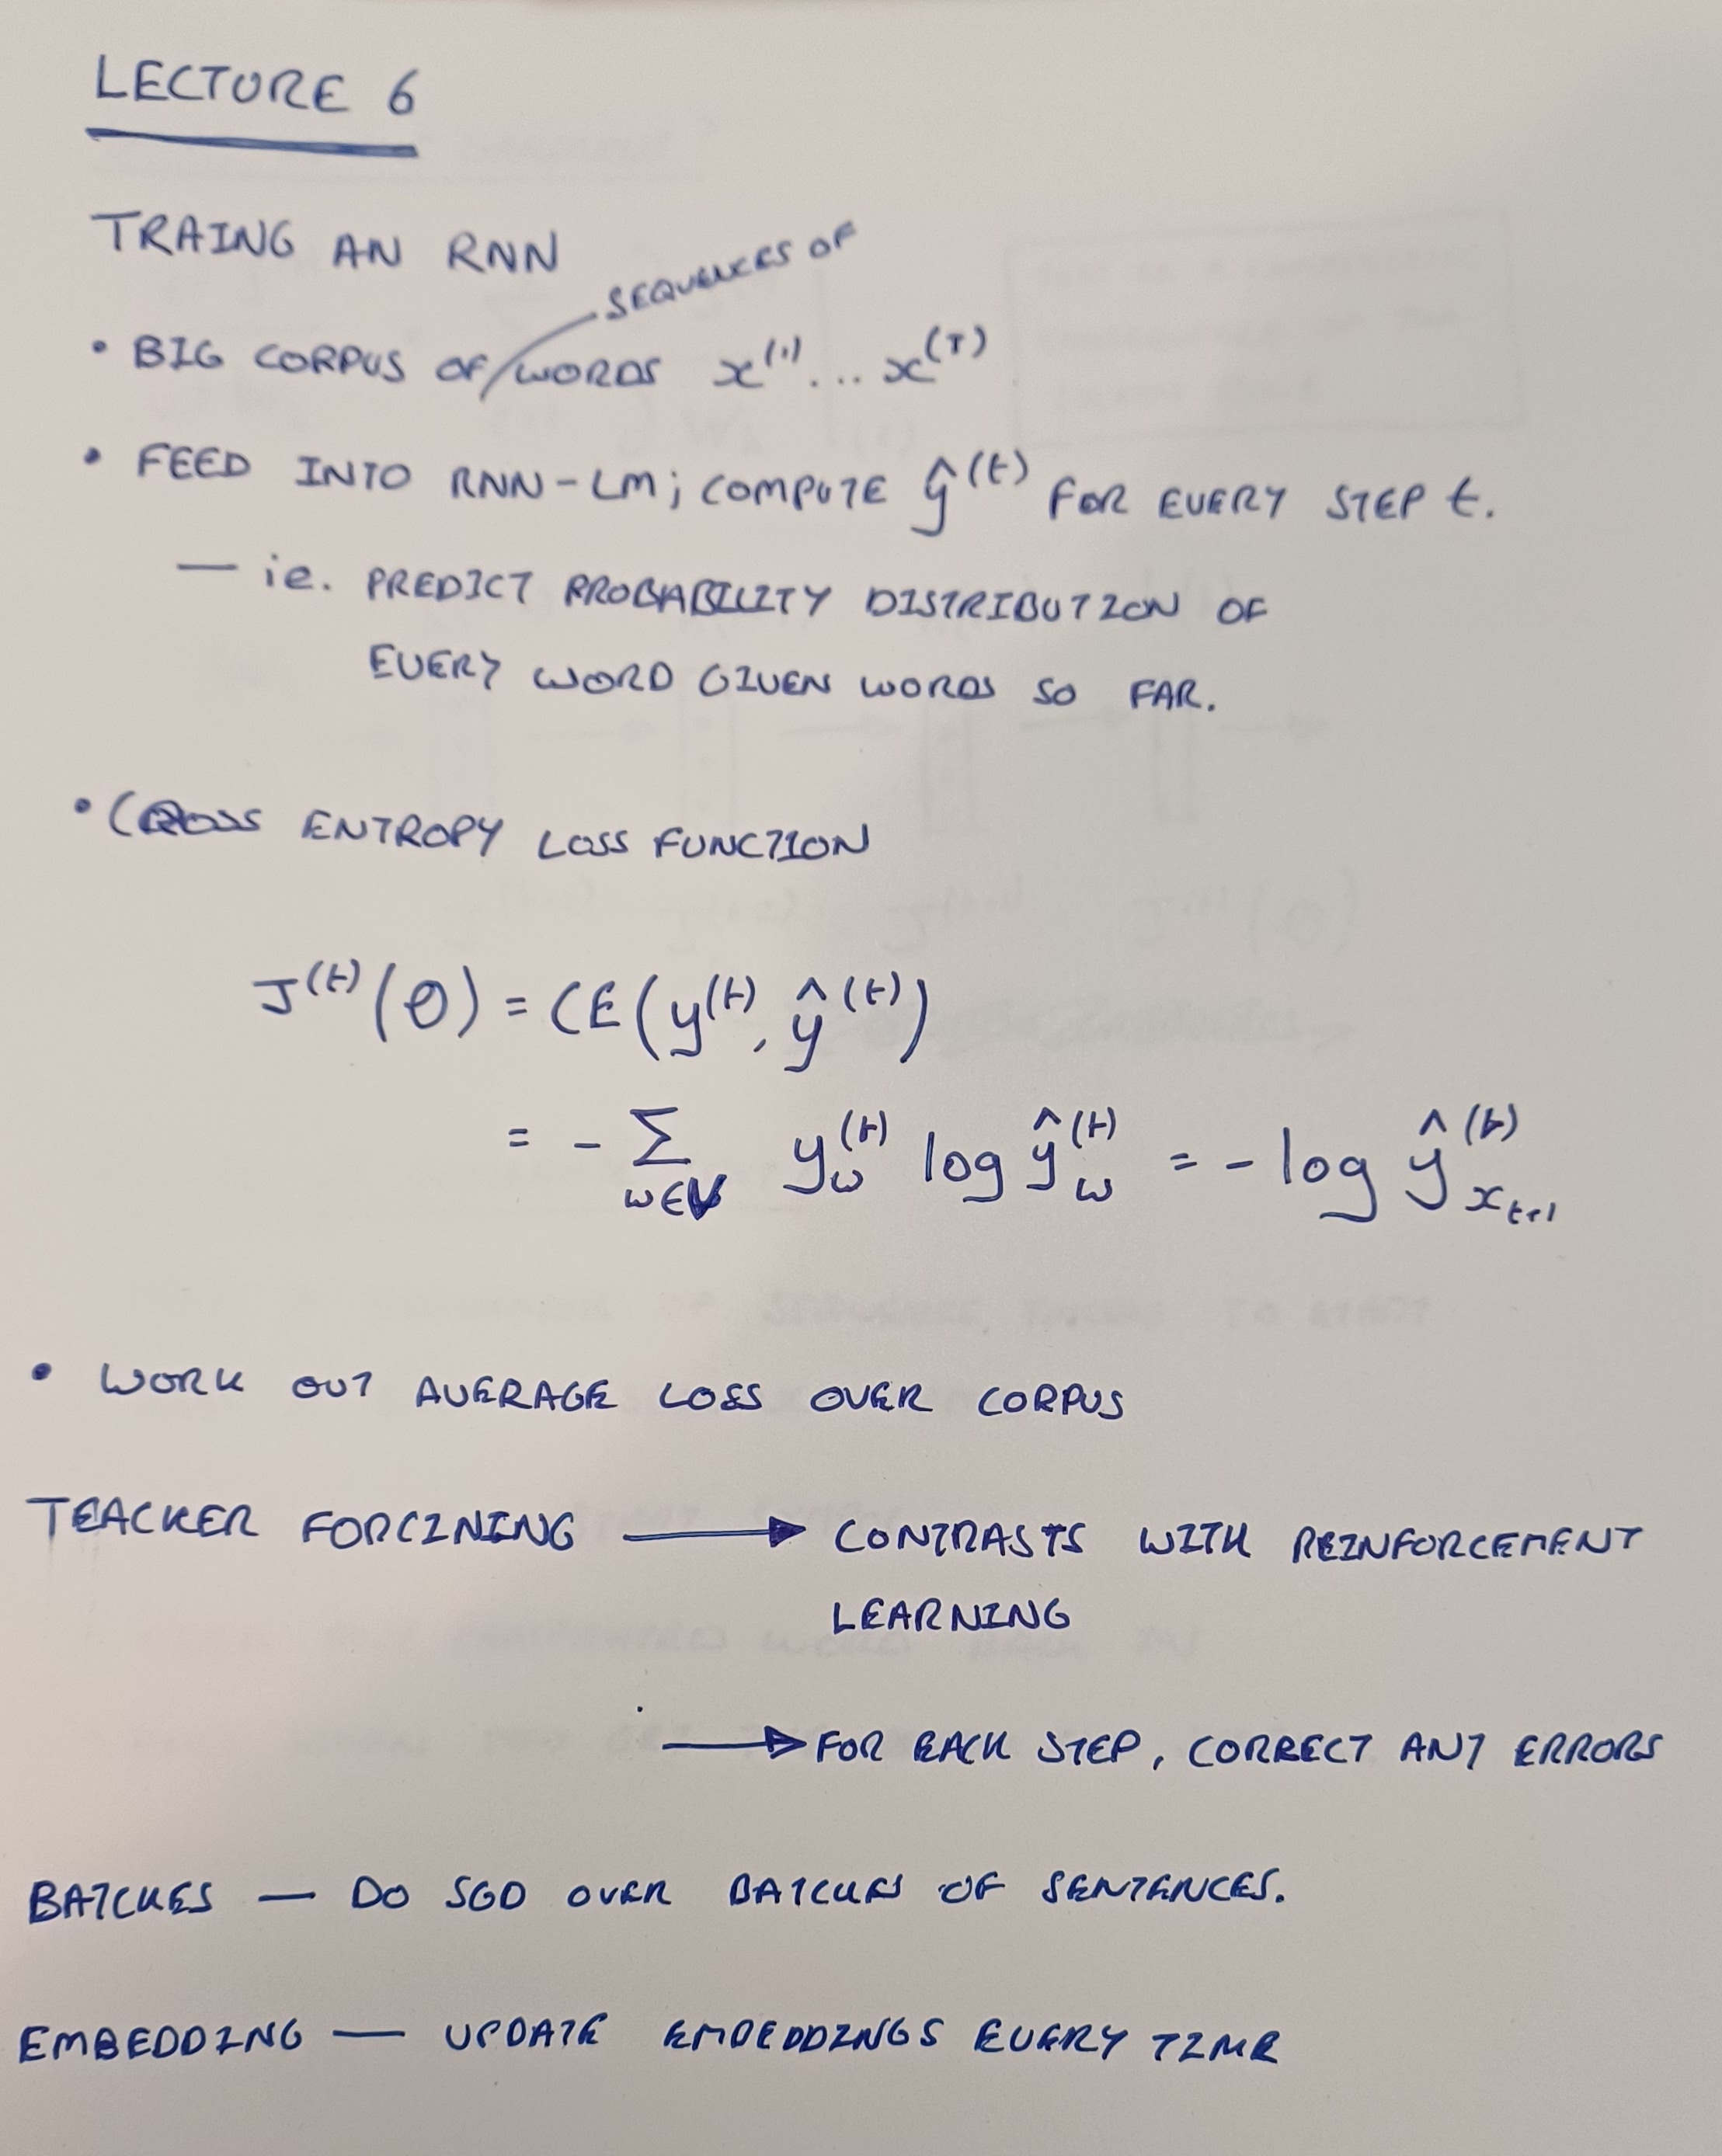 LECTURE 6
TRAING AN RNN
SEQUENCES OF
• BIG CORPUS OF WORDS x^(1) ... x^(T)
• FEED INTO RNN-LM; COMPUTE ŷ^(t) FOR EVERY STEP t.
— ie. PREDICT PROBABILITY DISTRIBUTION OF
EVERY WORD GIVEN WORDS SO FAR.
• CROSS ENTROPY LOSS FUNCTION
J^(t)(θ) = CE(y^(t), ŷ^(t))
= - Σ_{w∈V} y_w^(t) log ŷ_w^(t) = - log ŷ_{x_{t+1}}^(t)
• WORK OUT AVERAGE LOSS OVER CORPUS
TEACHER FORCINING → CONTRASTS WITH REINFORCEMENT
LEARNING
→ FOR EACH STEP, CORRECT ANY ERRORS
BATCHES — DO SGD OVER BATCHES OF SENTENCES.
EMBEDDING — UPDATE EMBEDDINGS EVERY TIME